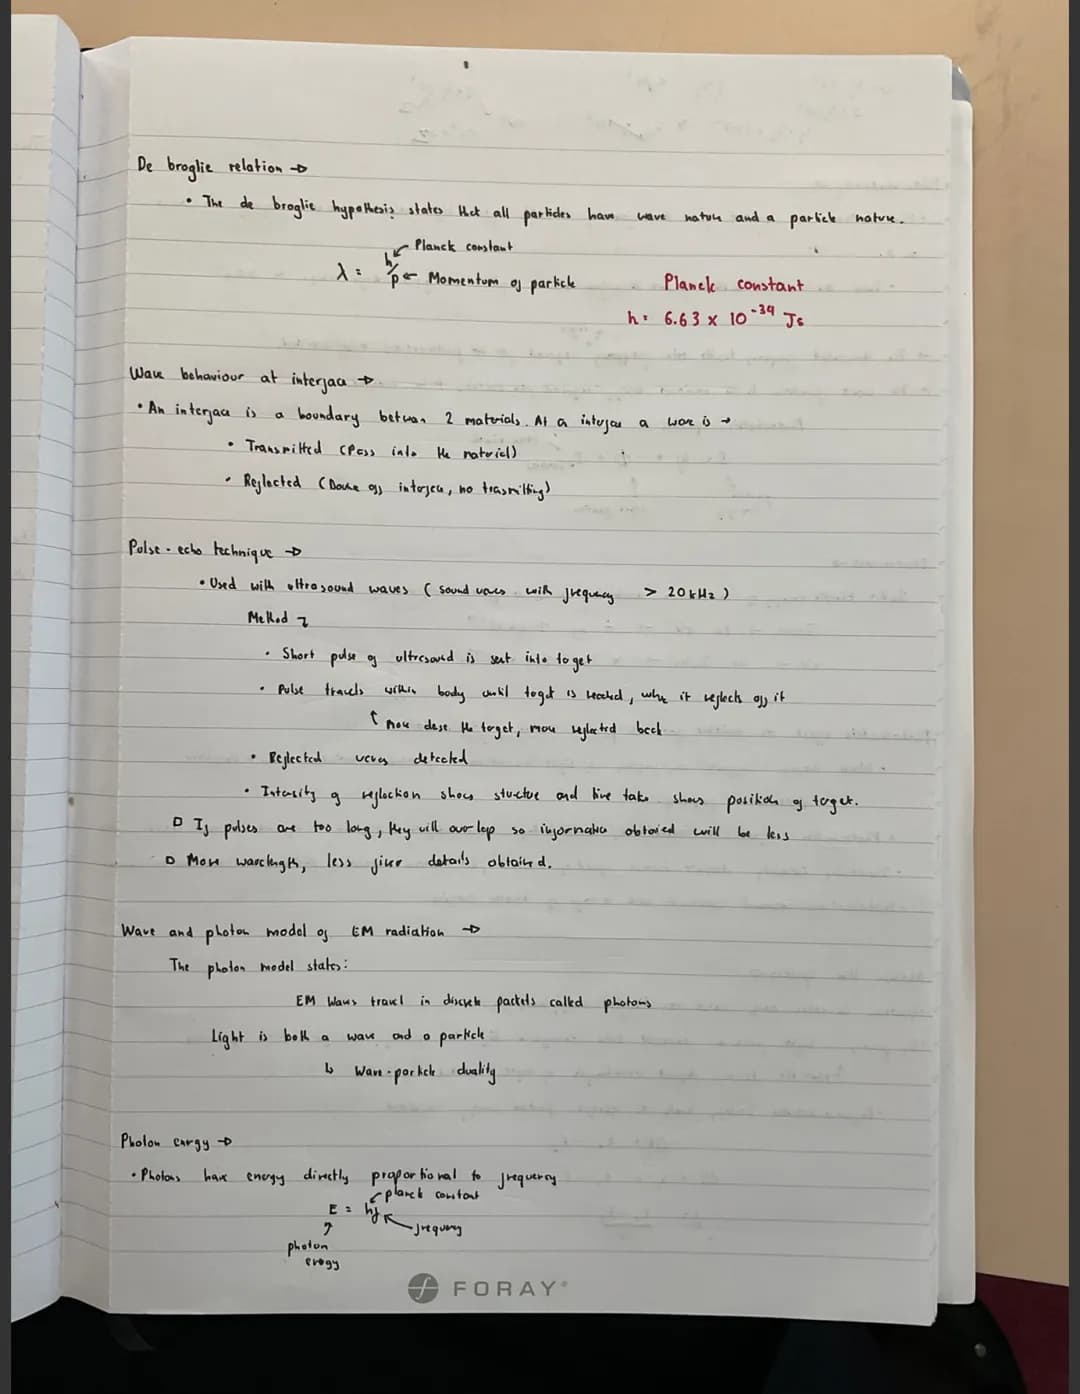 De broglie relation →
• The de broglie hypothesis states that all particles have wave nature and a particle nature.
← Planck constant
λ = h/p ← Momentum of particle
Planck constant
h = 6.63 x 10⁻³⁴ Js
Wave behaviour at interface →
• An interface is a boundary between 2 materials. At a interface a wave is →
• Transmitted (Pass into the material)
• Reflected (Bounce off interface, no trasmitting)
Pulse-echo technique →
• Used with ultrasound waves (sound waves with frequency > 20kHz)
Method
• Short pulse of ultrasound is sent into target
• Pulse travels within body until target is reached, where it reflects off it
↑ more dense the target, more reflected back
• Reflected waves detected
• Intensity of reflection shows structue and time taken shows position of target.
□ If pulses are too long, they will overlap so information obtained will be less
□ More wavelength, less finer details obtained.
Wave and photon model of EM radiation →
The photon model states:
EM Waves travel in discrete packets called photons
Light is both a wave and a particle
↳ Wave-particle duality
Photon energy →
• Photons have energy directly proportional to frequency
← planck constant
E = hf
← frequency
photon
energy
FORAY®